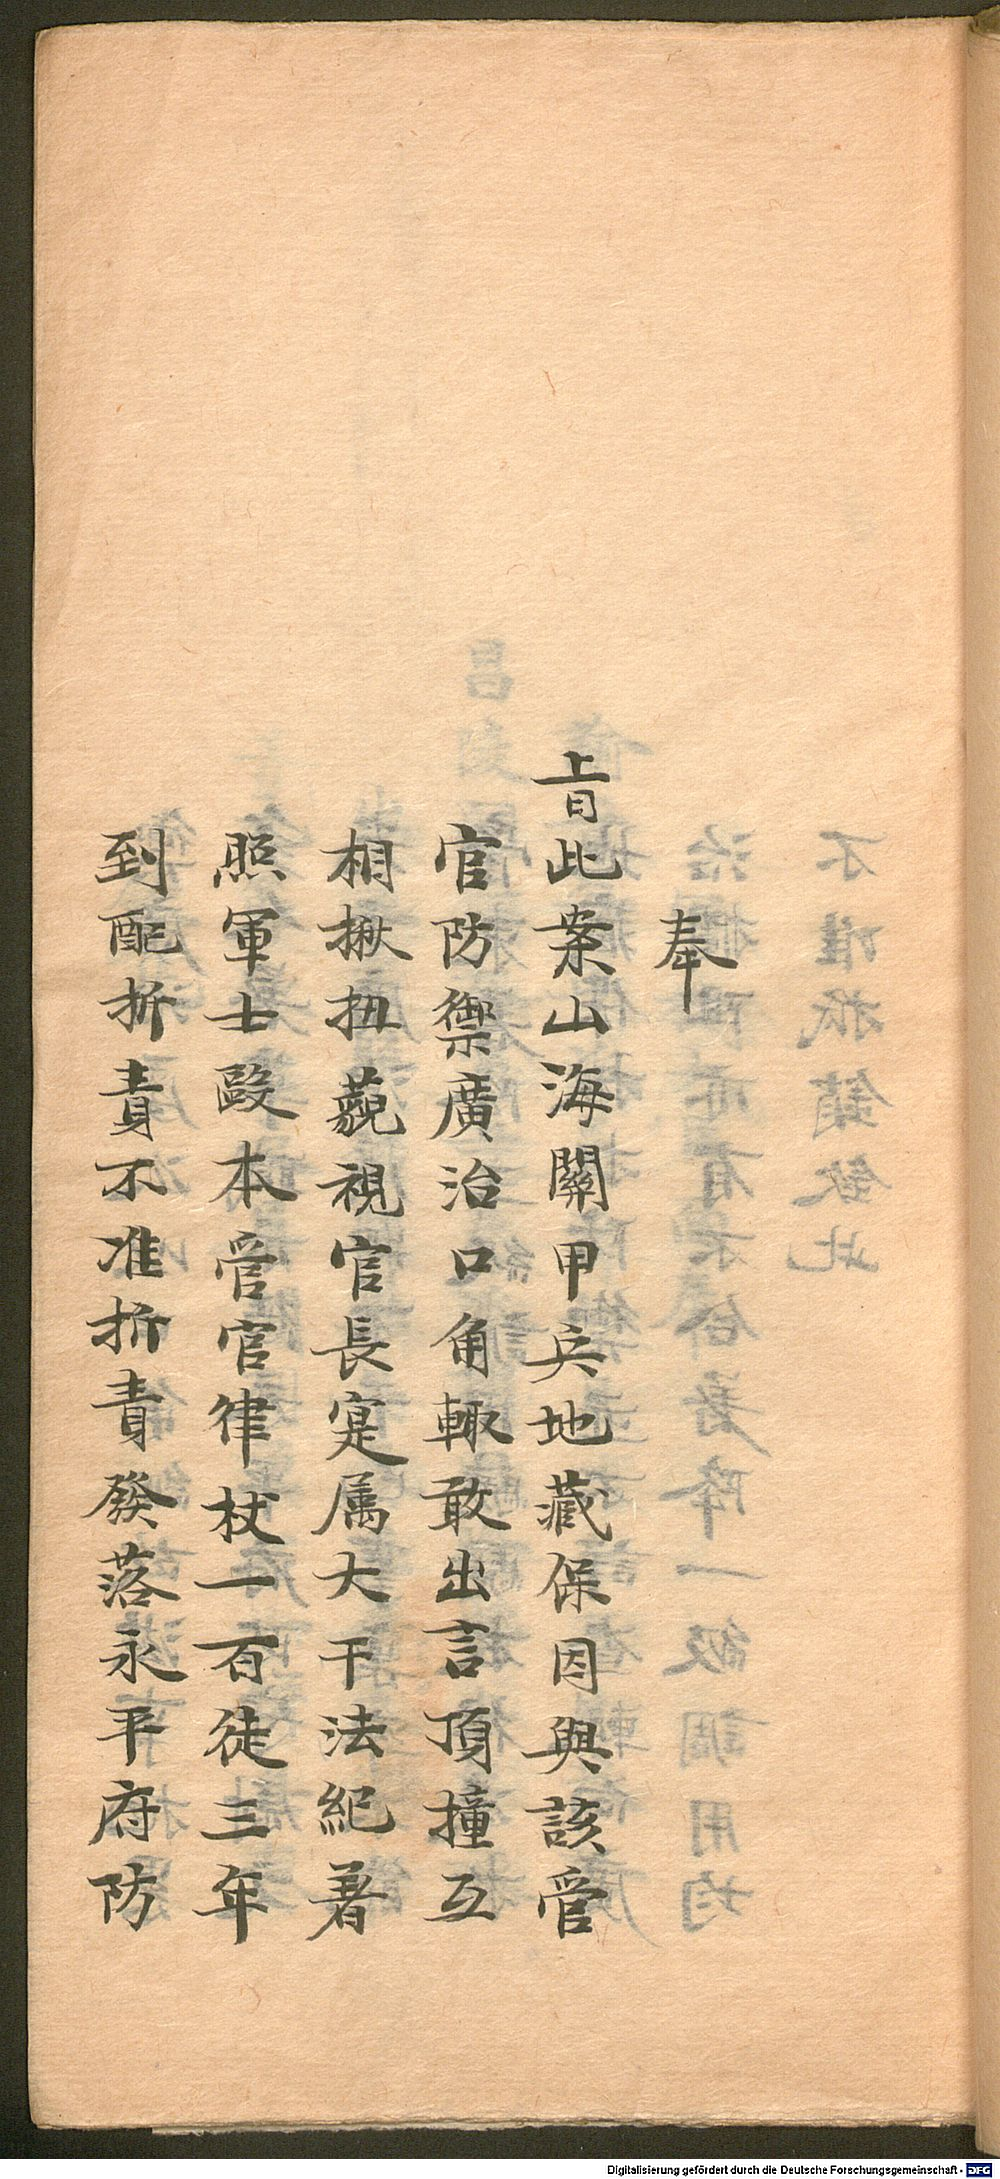 奉
旨此案山海關甲兵地藏保因與該管
官防禦廣治口角輙敢出言頂撞互
相揪扭藐視官長寔属大干法紀著
照軍士毆本管官律杖一百徒三年
到配折責不准折責發落永平府防
Digitalisierung gefördert durch die Deutsche Forschungsgemeinschaft - DFG